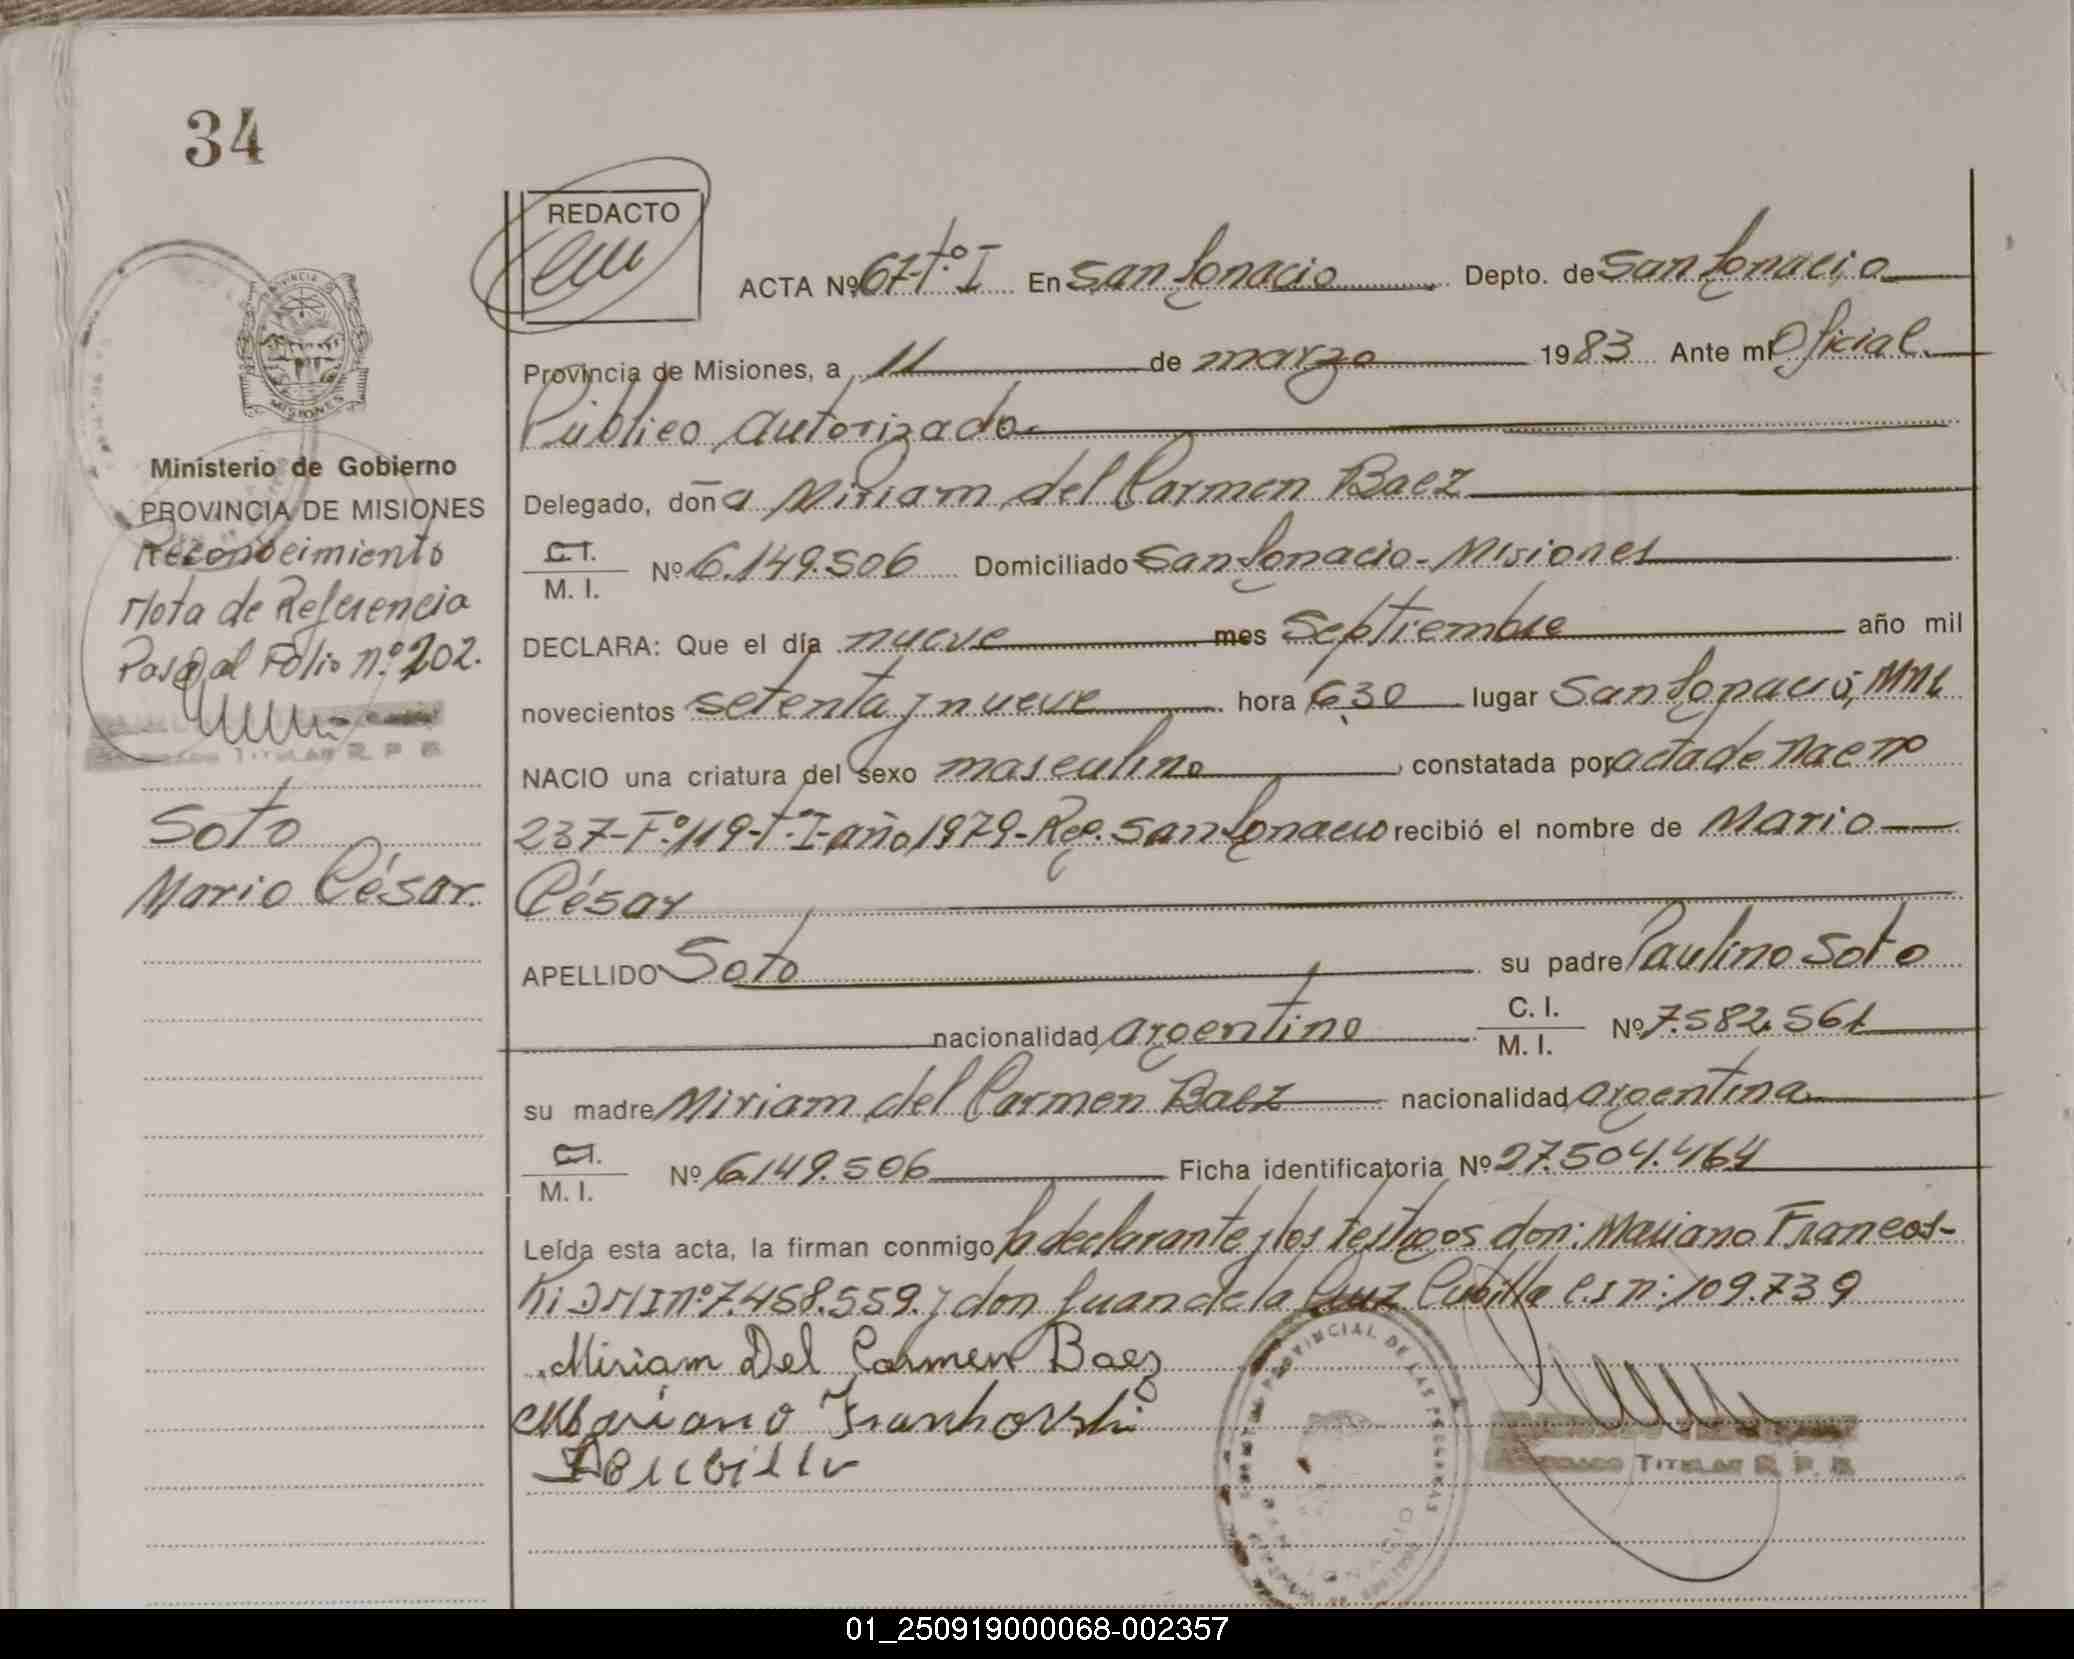 34
REDACTO
ACTA Nº 67-T.º I En San Ignacio Depto. de San Ignacio
Provincia de Misiones, a 11 de marzo 1983 Ante mí Oficial
Público Autorizado.
Delegado, doña Miriam del Carmen Baez
C.I. M. I. Nº 6.149.506 Domiciliado San Ignacio - Misiones
DECLARA: Que el día nueve mes Septiembre año mil
novecientos setenta y nueve hora 6,30 lugar San Ignacio, Mnes
NACIO una criatura del sexo masculino constatada por acta de Nac nº
237-Fº.119-T.ºI-año 1979-Reg. San Ignacio recibió el nombre de Mario
César
APELLIDO Soto su padre Paulino Soto
nacionalidad argentino C. I. M. I. Nº 7.582.561
su madre Miriam del Carmen Baez nacionalidad argentina
C.I. M. I. Nº 6.149.506 Ficha identificatoria Nº 27.504.464
Leída esta acta, la firman conmigo la declarante y los testigos don: Mariano Francos-
ki DMI nº 7.458.559. y don Juan de la Cruz Cubilla C.I nº: 109.739
Miriam Del Carmen Baez
Mariano Frankovski
PROVINCIAL DE LAS PERSONAS
TITULAR R. P. P.
PROVINCIA
MISIONES
Ministerio de Gobierno
PROVINCIA DE MISIONES
Reconocimiento
Nota de Referencia
Pasa al Folio n.º 202.
TITULAR R. P. P.
Soto
Mario César.
01_250919000068-002357